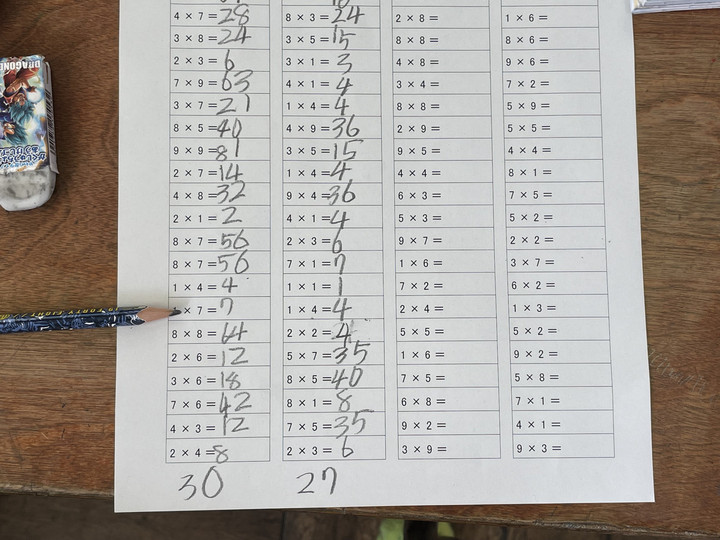 4 × 7 = 28
3 × 8 = 24
2 × 3 = 6
7 × 9 = 63
3 × 7 = 21
8 × 5 = 40
9 × 9 = 81
2 × 7 = 14
4 × 8 = 32
2 × 1 = 2
8 × 7 = 56
8 × 7 = 56
1 × 4 = 4
× 7 = 7
8 × 8 = 64
2 × 6 = 12
3 × 6 = 18
7 × 6 = 42
4 × 3 = 12
2 × 4 = 8
30
8 × 3 = 24
3 × 5 = 15
3 × 1 = 3
4 × 1 = 4
1 × 4 = 4
4 × 9 = 36
3 × 5 = 15
1 × 4 = 4
9 × 4 = 36
4 × 1 = 4
2 × 3 = 6
7 × 1 = 7
1 × 1 = 1
1 × 4 = 4
2 × 2 = 4
5 × 7 = 35
8 × 5 = 40
8 × 1 = 8
7 × 5 = 35
2 × 3 = 6
27
2 × 8 =
8 × 8 =
4 × 8 =
3 × 4 =
8 × 8 =
2 × 9 =
9 × 5 =
4 × 4 =
6 × 3 =
5 × 3 =
9 × 7 =
1 × 6 =
7 × 2 =
2 × 4 =
5 × 5 =
1 × 6 =
7 × 5 =
6 × 8 =
9 × 2 =
3 × 9 =
1 × 6 =
8 × 6 =
9 × 6 =
7 × 2 =
5 × 9 =
5 × 5 =
4 × 4 =
8 × 1 =
7 × 5 =
5 × 2 =
2 × 2 =
3 × 7 =
6 × 2 =
1 × 3 =
5 × 2 =
9 × 2 =
5 × 8 =
7 × 1 =
4 × 1 =
9 × 3 =